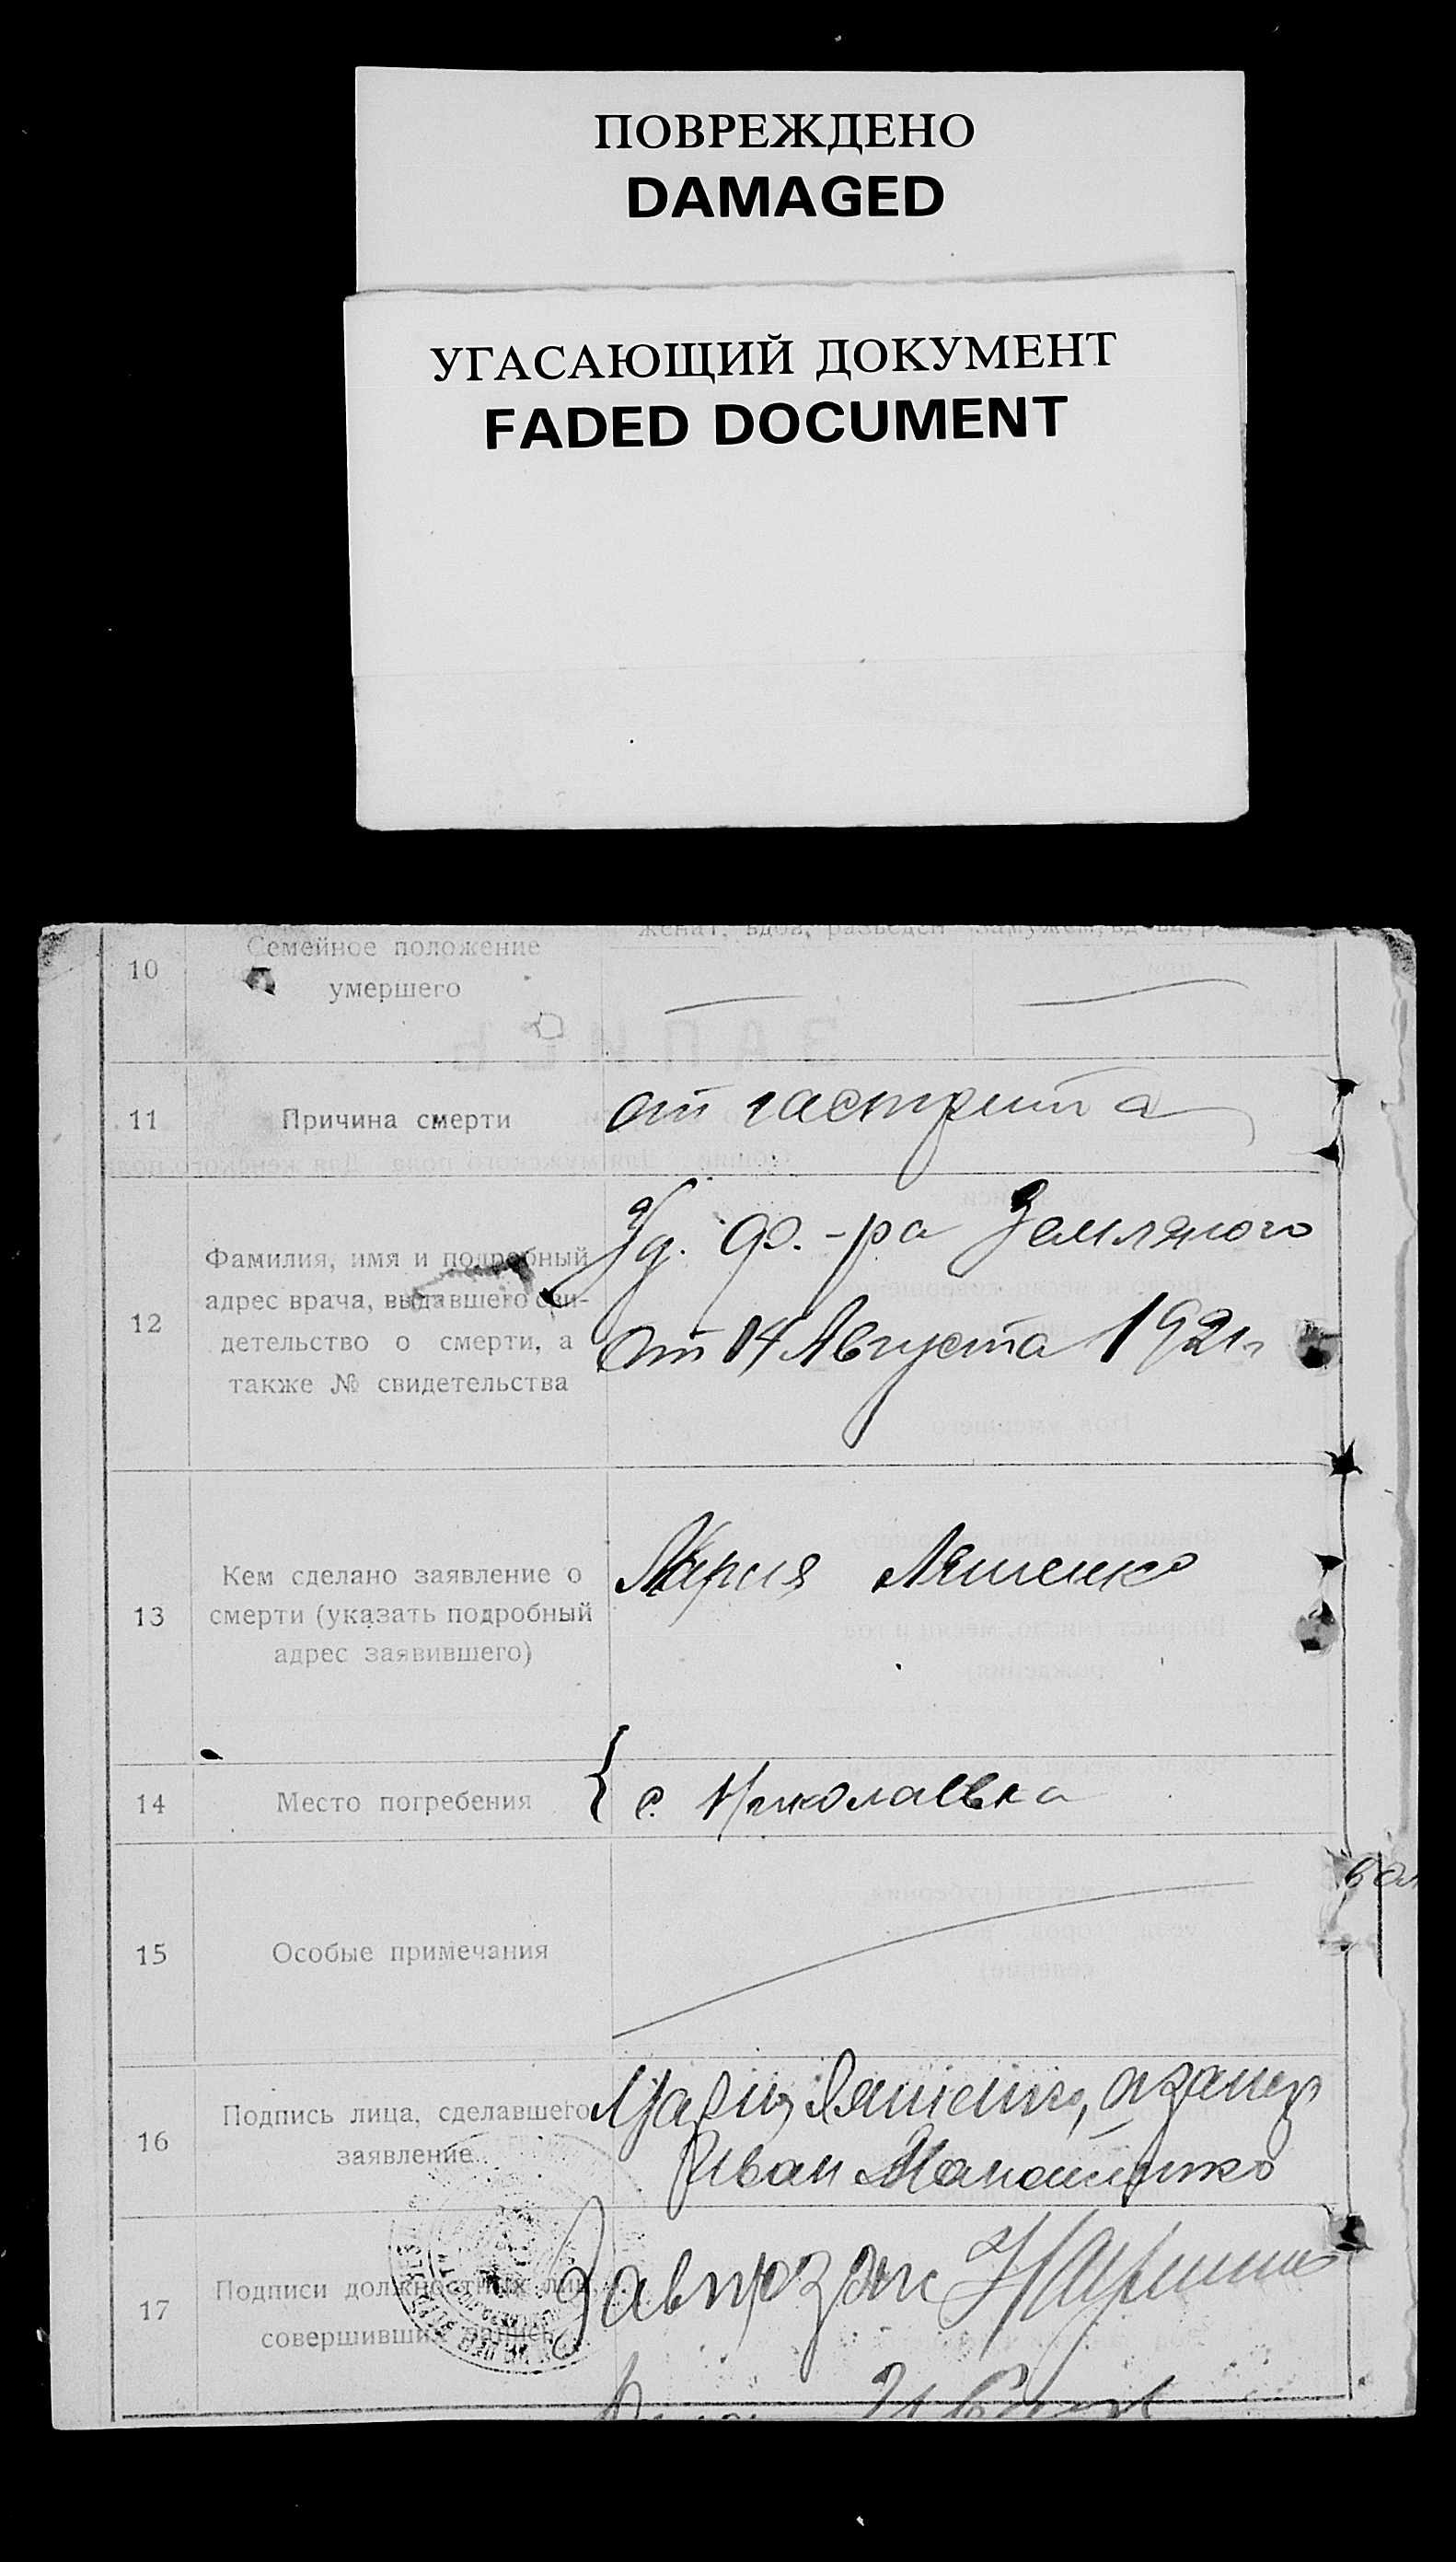 ПОВРЕЖДЕНО
DAMAGED
УГАСАЮЩИЙ ДОКУМЕНТ
FADED DOCUMENT
женат, вдов, разведен замужем, вдова,
10
Семейное положение
умершего
11
Причина смерти
от гастрита
12
Фамилия, имя и подробный
адрес врача, выдавшего сви-
детельство о смерти, а
также № свидетельства
Уд. ф.-ра Земляного
От 14 Августа 1921г
13
Кем сделано заявление о
смерти (указать подробный
адрес заявившего)
Мария Ляшенко
14
Место погребения
с. Николаевка
15
Особые примечания
16
Подпись лица, сделавшего
заявление
Мария Ляшенко, а за нея
Иван
17
Подписи должностных лиц,
совершивших запись
Завпозап